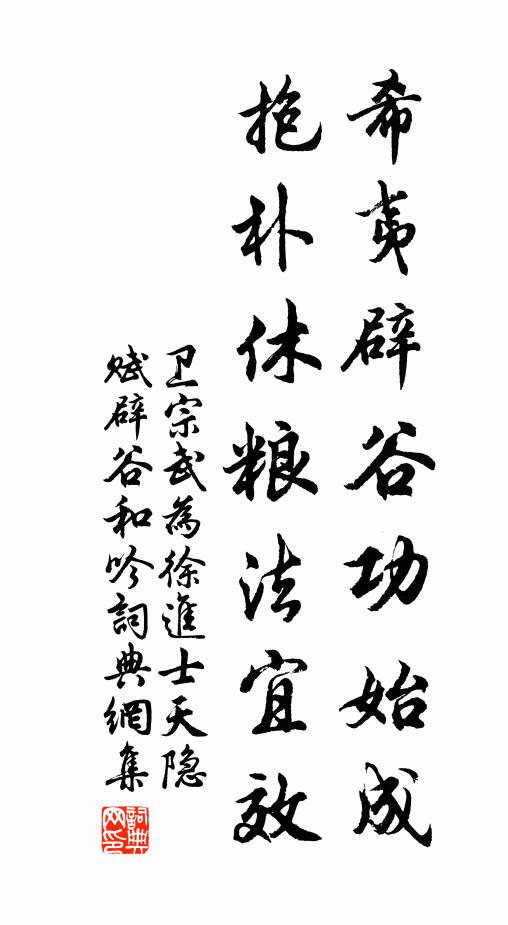 希夷辟谷功始成
抱朴休粮法宜效
卫宗武為徐進士天隐
赋辟谷和吟詞典網集
詞典网印